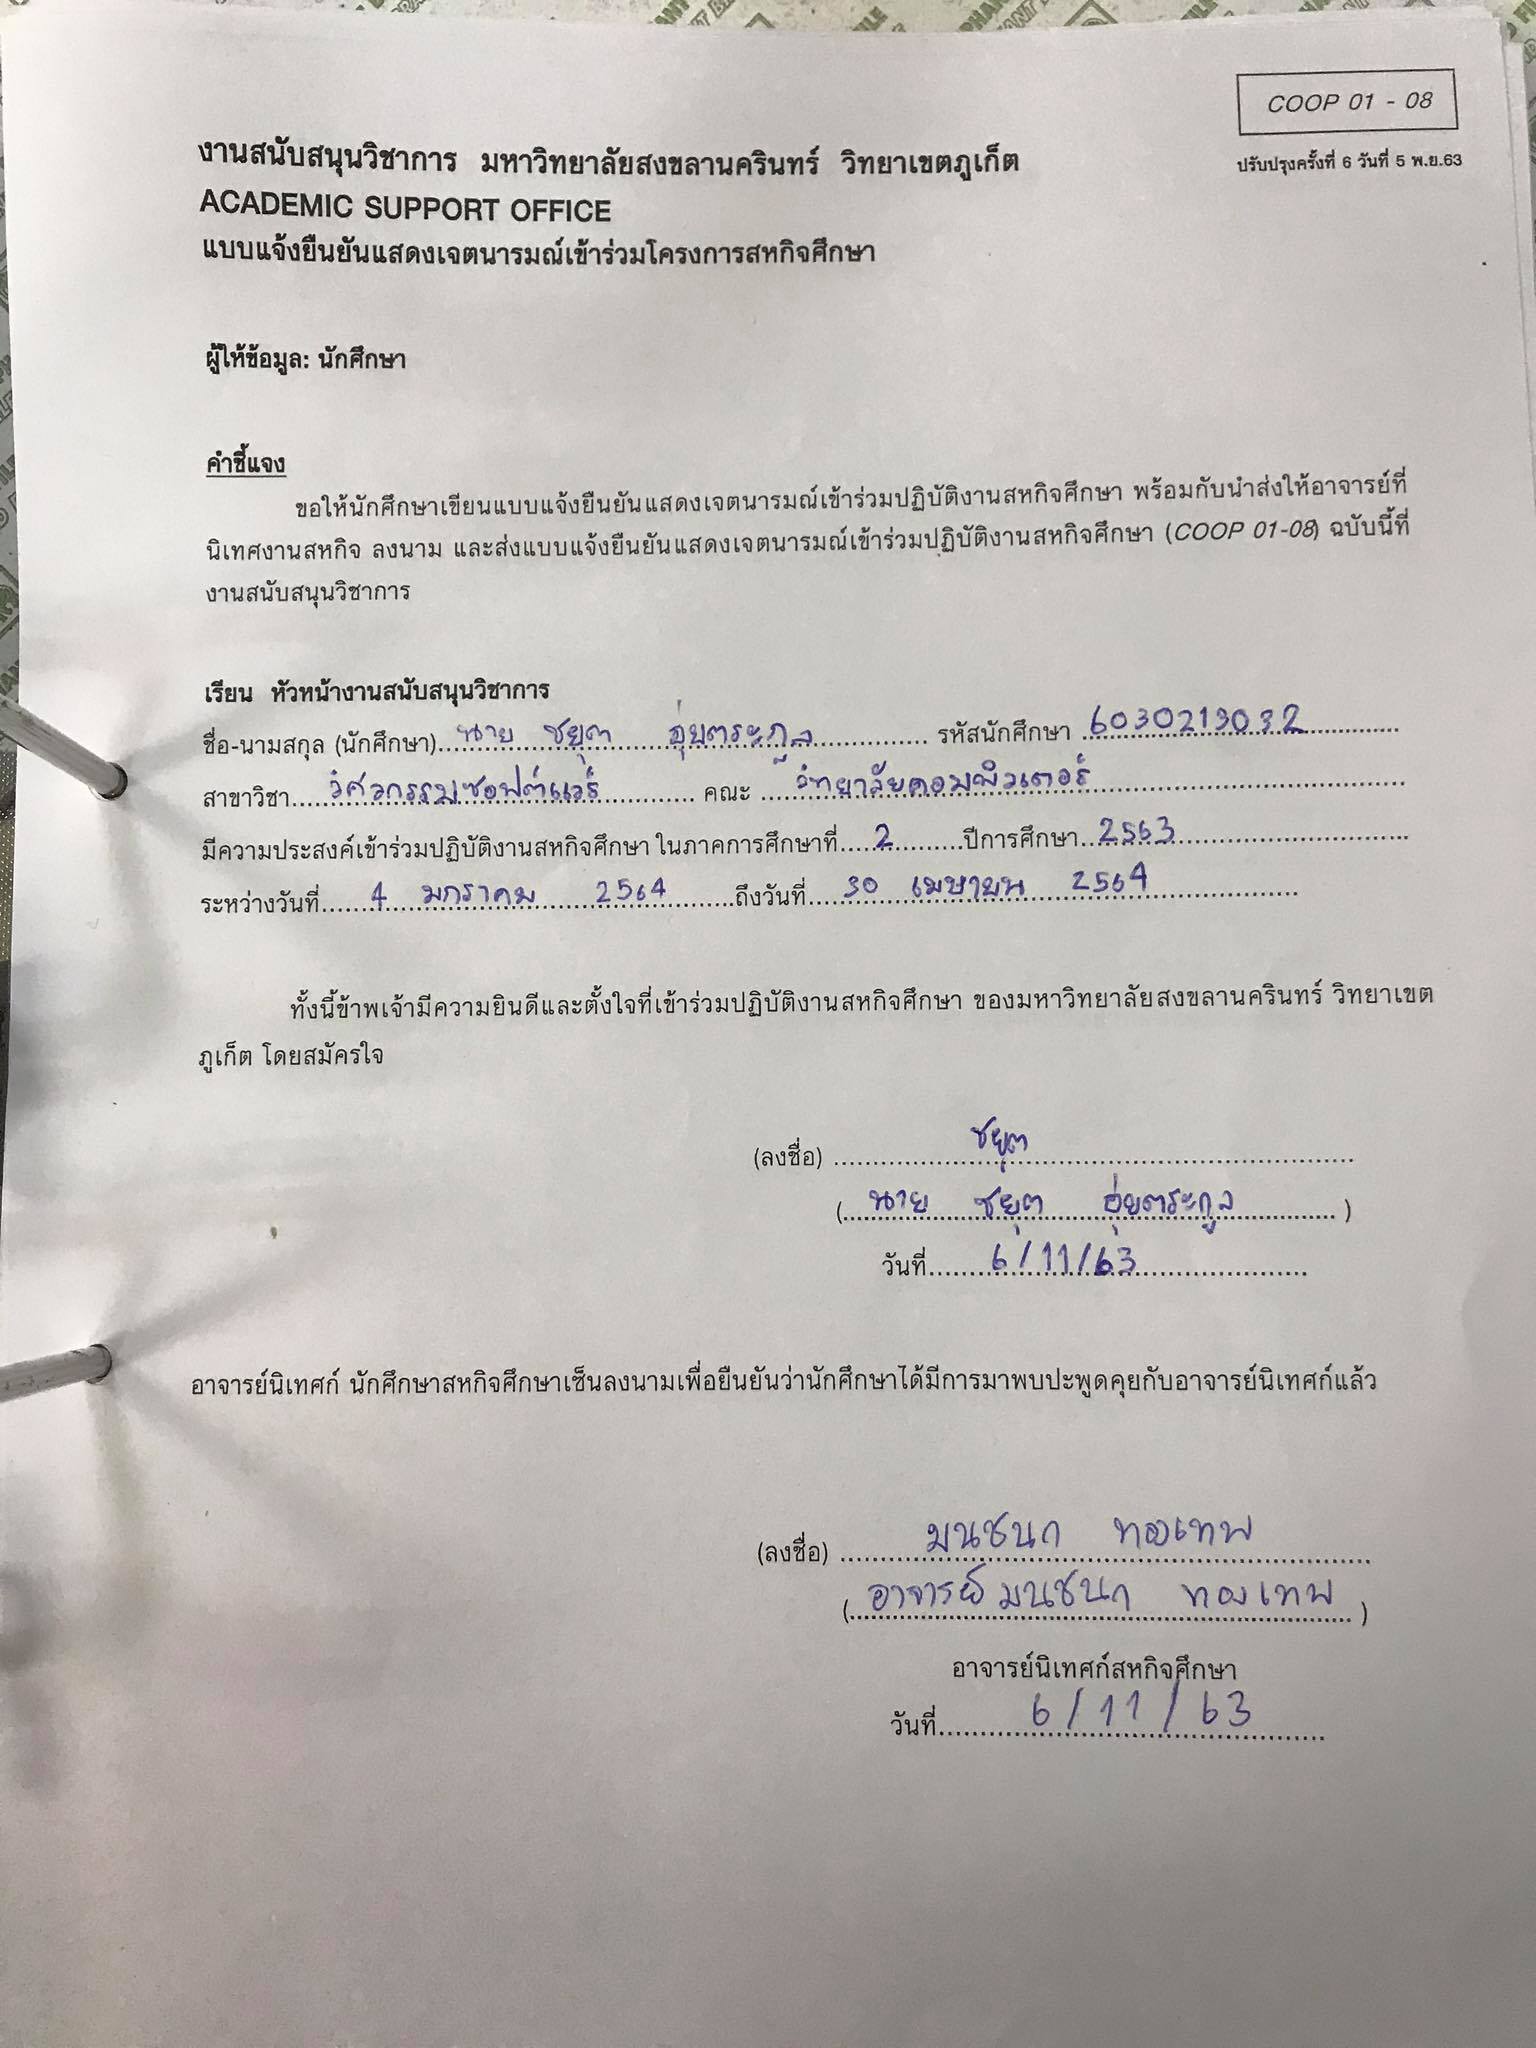 COOP 01 - 08
ปรับปรุงครั้งที่ 6 วันที่ 5 พ.ย.63
งานสนับสนุนวิชาการ มหาวิทยาลัยสงขลานครินทร์ วิทยาเขตภูเก็ต
ACADEMIC SUPPORT OFFICE
แบบแจ้งยืนยันแสดงเจตนารมณ์เข้าร่วมโครงการสหกิจศึกษา
ผู้ให้ข้อมูล: นักศึกษา
คำชี้แจง
ขอให้นักศึกษาเขียนแบบแจ้งยืนยันแสดงเจตนารมณ์เข้าร่วมปฏิบัติงานสหกิจศึกษา พร้อมกับนำส่งให้อาจารย์ที่
นิเทศงานสหกิจ ลงนาม และส่งแบบแจ้งยืนยันแสดงเจตนารมณ์เข้าร่วมปฏิบัติงานสหกิจศึกษา (COOP 01-08) ฉบับนี้ที่
งานสนับสนุนวิชาการ
เรียน หัวหน้างานสนับสนุนวิชาการ
ชื่อ-นามสกุล (นักศึกษา) นาย ชยุต อุ่ยตระกูล รหัสนักศึกษา 6030213032
สาขาวิชา วิศวกรรมซอฟต์แวร์ คณะ วิทยาลัยคอมพิวเตอร์
มีความประสงค์เข้าร่วมปฏิบัติงานสหกิจศึกษา ในภาคการศึกษาที่ 2 ปีการศึกษา 2563
ระหว่างวันที่ 4 มกราคม 2564 ถึงวันที่ 30 เมษายน 2564
ทั้งนี้ข้าพเจ้ามีความยินดีและตั้งใจที่เข้าร่วมปฏิบัติงานสหกิจศึกษา ของมหาวิทยาลัยสงขลานครินทร์ วิทยาเขต
ภูเก็ต โดยสมัครใจ
(ลงชื่อ) ชยุต
(นาย ชยุต อุ่ยตระกูล)
วันที่ 6/11/63
อาจารย์นิเทศก์ นักศึกษาสหกิจศึกษาเซ็นลงนามเพื่อยืนยันว่านักศึกษาได้มีการมาพบปะพูดคุยกับอาจารย์นิเทศก์แล้ว
(ลงชื่อ) มนชนก ทองเทพ
(อาจารย์มนชนก ทองเทพ)
อาจารย์นิเทศก์สหกิจศึกษา
วันที่ 6/11/63